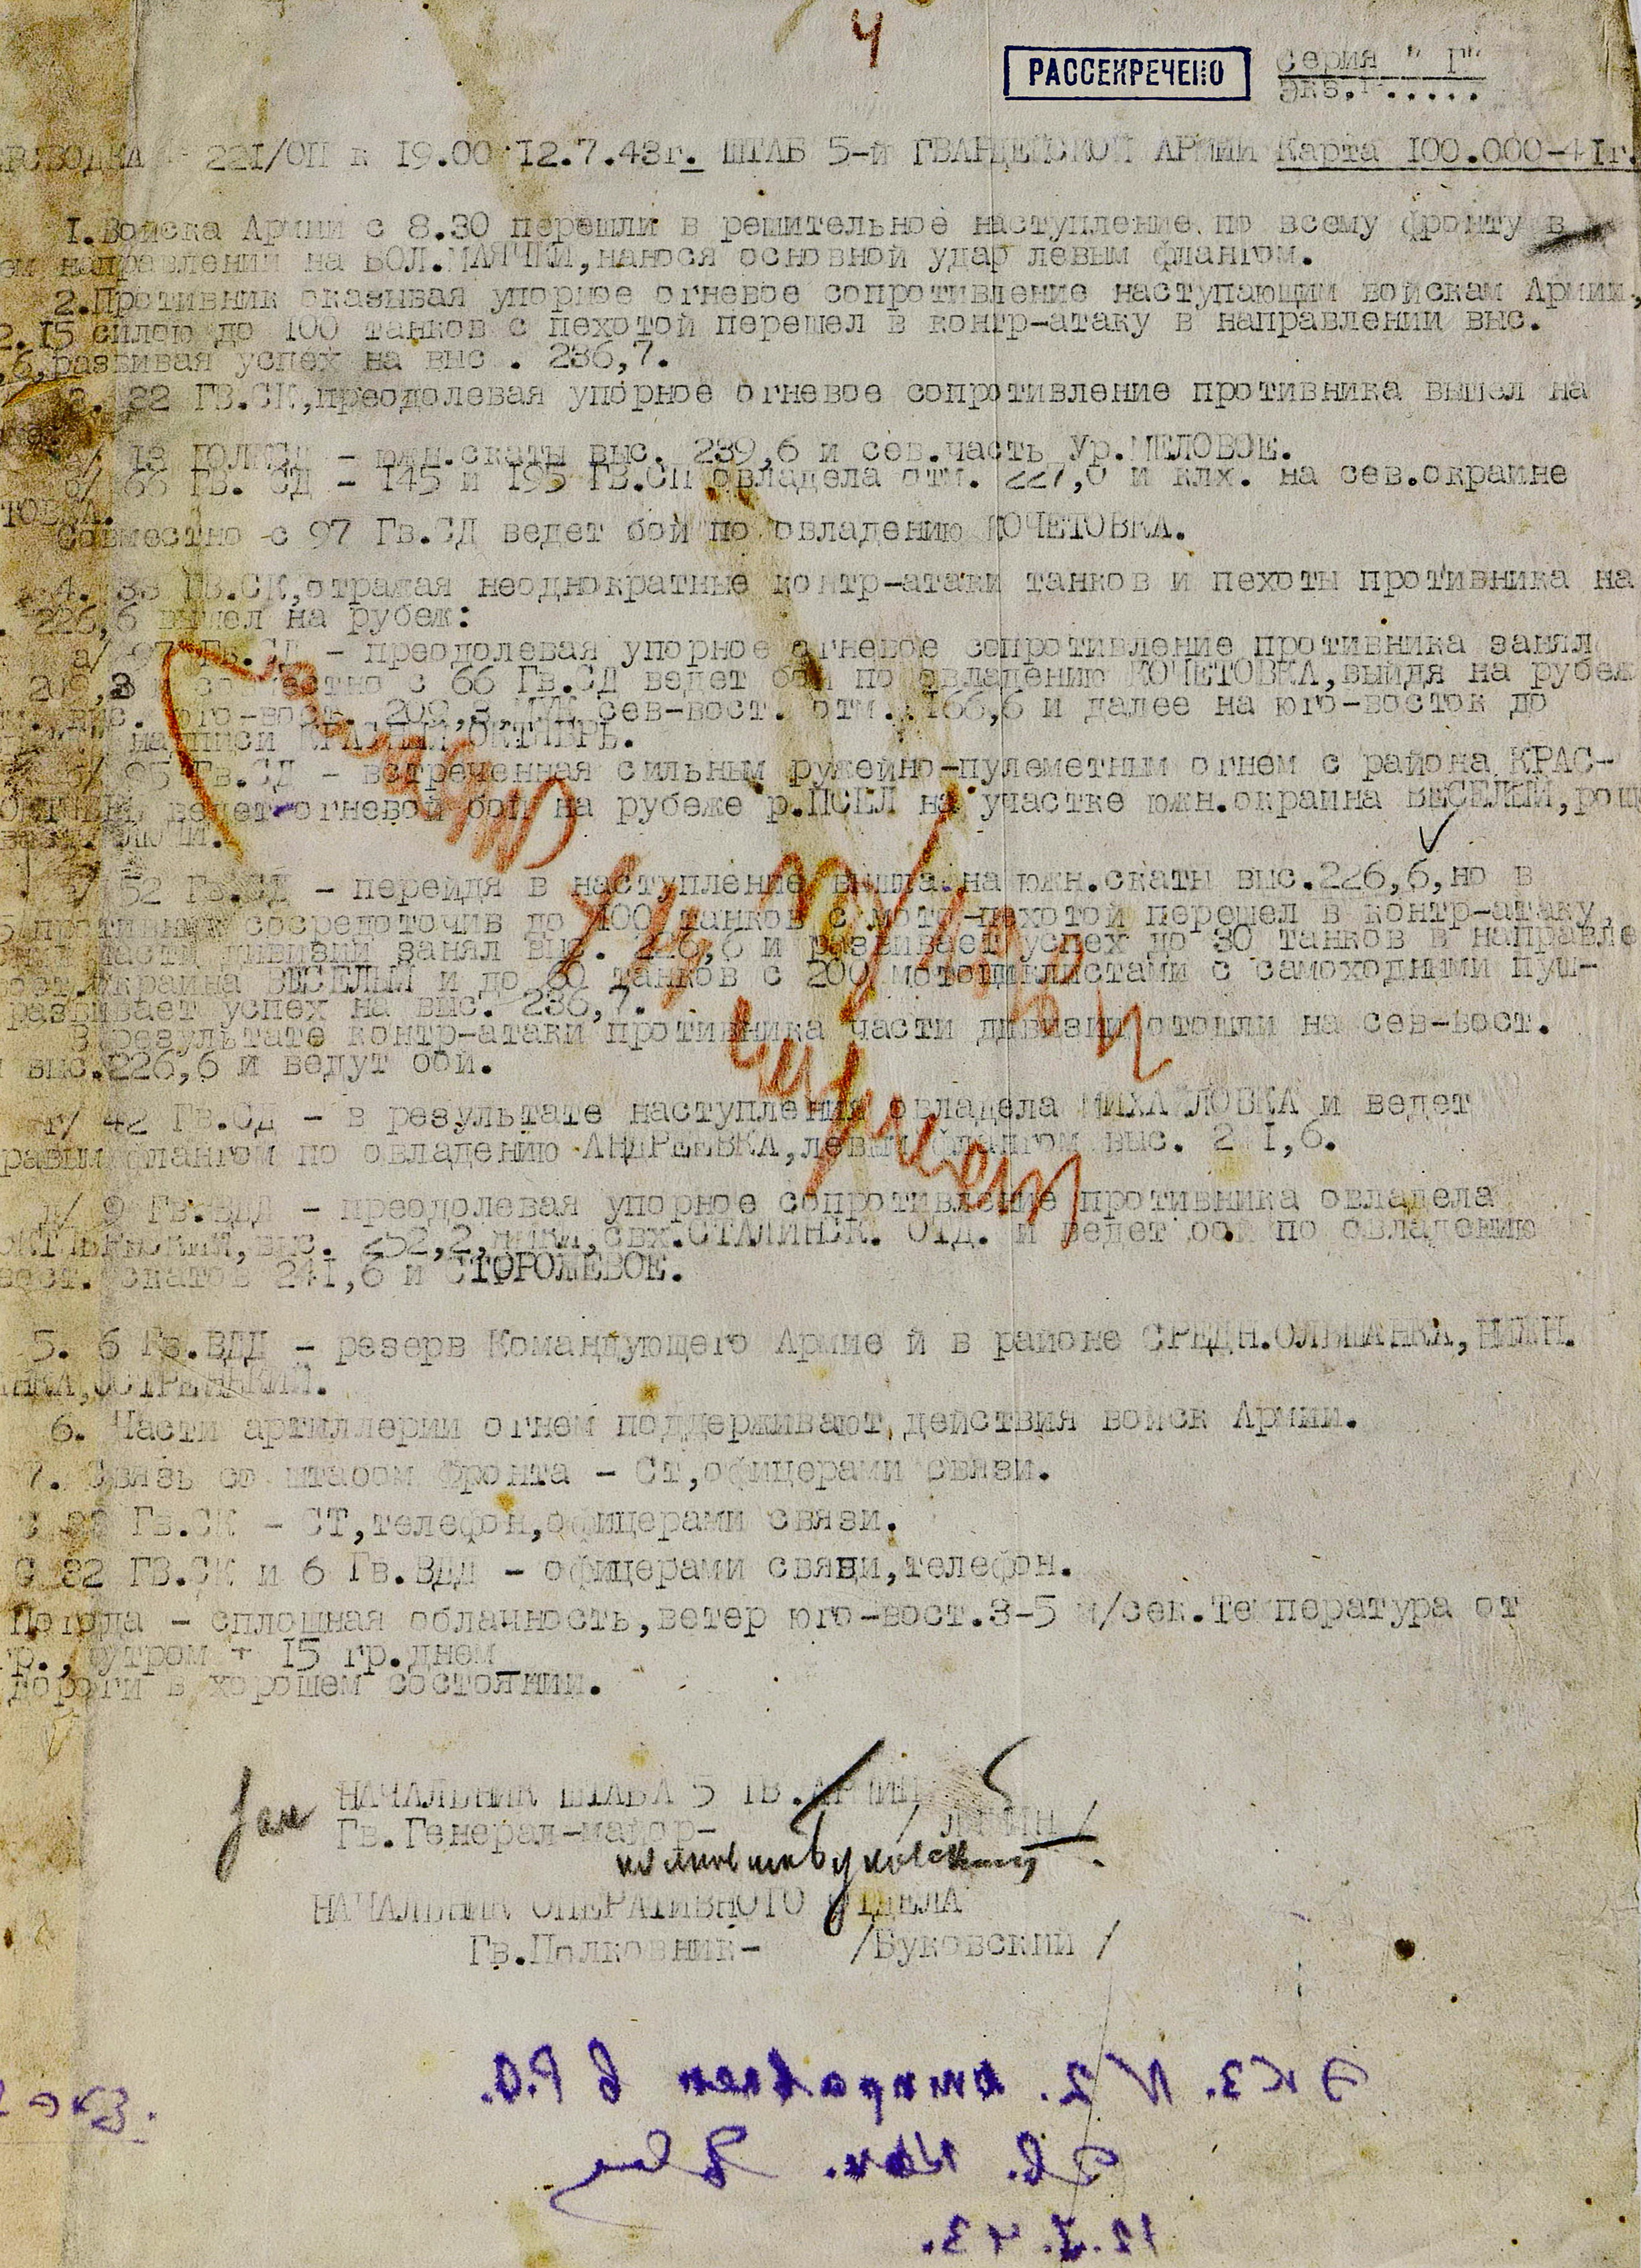 4
РАССЕКРЕЧЕНО
Серия "Г"
Экз.
221/ОП к 19.00 12.7.43г. ШТАБ 5-й ГВАРДЕЙСКОЙ АРМИИ Карта 100.000-41г.
1.Войска Армии с 8.30 перешли в решительное наступление по всему фронту в
направлении на БОЛ.МАЯЧКИ,нанося основной удар левым флангом.
2.Противник оказывая упорное огневое сопротивление наступающим войскам Армии,
2.15 силою до 100 танков с пехотой перешел в контр-атаку в направлении выс.
,6,развивая успех на выс . 236,7.
3. 32 ГВ.СК,преодолевая упорное огневое сопротивление противника вышел на
а/ 13 - южн.скаты выс. 239,6 и сев.часть Ур.МЕЛОВОЕ.
б/ 66 Гв. СД - 145 и 195 ГВ.СП овладела отм. 227,0 и клх. на сев.окраине
ТОВКА.
Совместно с 97 Гв.СД ведет бой по овладению КОЧЕТОВКА.
4. 33 Гв.СК,отражая неоднократные контр-атаки танков и пехоты противника на
. 226,6 вышел на рубеж:
а/ 97 Гв.СД - преодолевая упорное огневое сопротивление противника занял
209,3 и совместно с 66 Гв.СД ведет бой по овладению КОЧЕТОВКА,выйдя на рубеж
выс. юго-вост. 209,3, сев-вост. отм. 166,6 и далее на юго-восток до
надписи КРАСНЫЙ ОКТЯБРЬ.
б/ 95 Гв.СД - встреченная сильным ружейно-пулеметным огнем с района КРАС-
ОКТЯБРЬ ведет огневой бой на рубеже р.ПСЕЛ на участке южн.окраина ВЕСЕЛЫЙ,рощ
в/ 52 Гв.СД - перейдя в наступление вышла на южн.скаты выс.226,6,но в
5 противник сосредоточив до 100 танков с мото-пехотой перешел в контр-атаку,
части дивизии занял выс. 226,6 и развивает успех до 30 танков в направле
окраина ВЕСЕЛЫЙ и до 60 танков с 200 мотоциклистами с самоходными пуш-
развивает успех на выс. 236,7.
В результате контр-атаки противника части дивизии отошли на сев-вост.
выс.226,6 и ведут бой.
г/ 42 Гв.СД - в результате наступления овладела МИХАЙЛОВКА и ведет
равым флангом по овладению АНДРЕЕВКА,левым флангом выс. 241,6.
д/ 9 Гв.ВДД - преодолевая упорное сопротивление противника овладела
ОКТЯБРЬСКИЙ,выс. 252,2,свх.СТАЛИНСК. ОТД. и ведет бой по овладению
вост. скатов 241,6 и СТОРОЖЕВОЕ.
5. 6 Гв.ВДД - резерв Командующего Армие й в районе СРЕДН.ОЛЬШАНКА,НИЖН.
АНКА,ОСТРЕНЬКИЙ.
6. Части артиллерии огнем поддерживают действия войск Армии.
7. Связь со штабом фронта - Ст,офицерами связи.
С 33 Гв.СК - СТ,телефон,офицерами связи.
С 32 ГВ.СК и 6 Гв.ВДД - офицерами связи,телефон.
Погода - сплошная облачность,ветер юго-вост.3-5 м/сек.Температура от
гр., утром + 15 гр.днем_
дороги в хорошем состоянии.
Зам НАЧАЛЬНИК ШТАБА 5 ГВ.АРМИИ
Гв.Генерал-майор- / ЛЯМИН /
полковник Буковский
НАЧАЛЬНИК ОПЕРАТИВНОГО ОТДЕЛА
Гв.Полковник- /Буковский /
Экз. N 2. отправлен в Р.О.
экз.
Гв. Кап.
12.7.43.